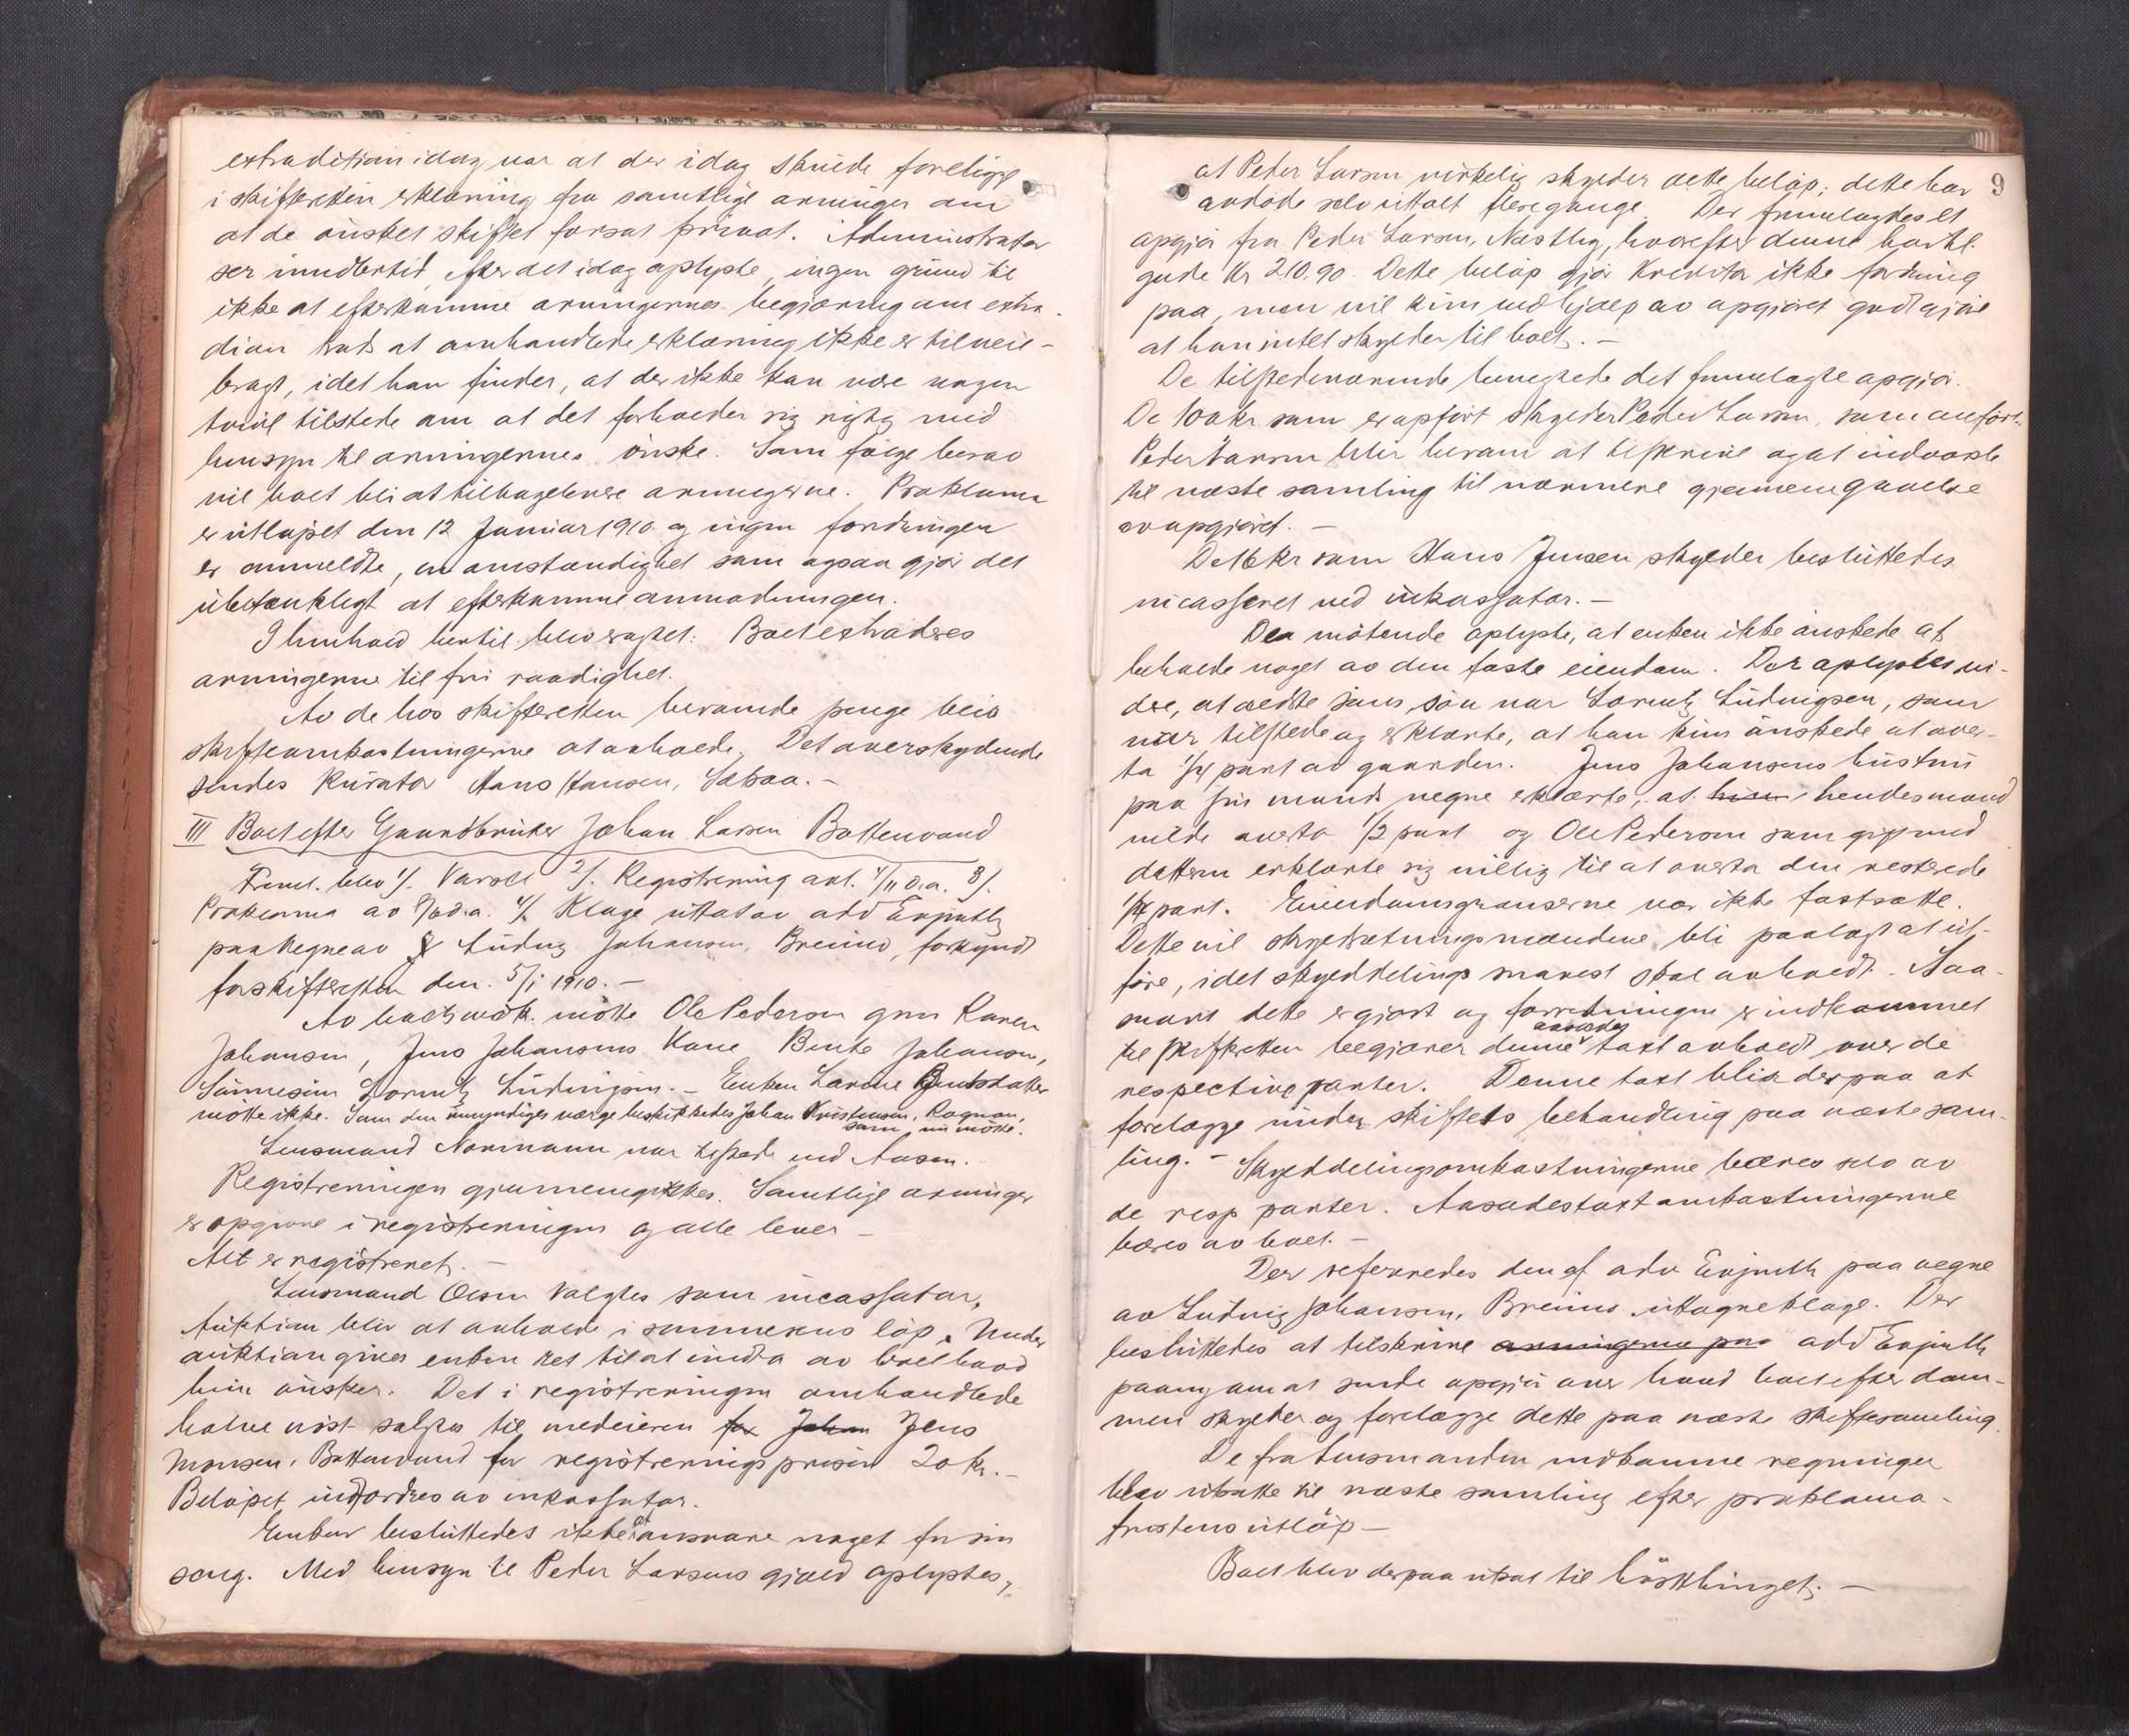 extradition idag var at der idag skulde foreligge
i skifteretten erklæring fra samtlige arvinger om
at de ønsket skiftet forsat privat. Administrator
ser imidlertid, efter det idag oplyste, ingen grund til
ikke at efterkomme arvingernes begjæring om extra-
dion trods at omhandlede erklæring ikke er tilveie-
bragt, idet han finder, at der ikke kan være nogen
tvivl tilstede om at det forholder sig rigtig med
hensyn til arvingernes ønske. Som følge herav
vil boet bli at tilbagelevere arvingerne. Proklama
er utløpet den 12 Januar 1910 og ingen fordringer
er anmeldte, en omstændighet som ogsaa gjør det
ubetænkligt at efterkomme anmodningen.
I henhold hertil blev vagtet: Boet extraderes
arvingerne til fri raadighet.
Av de hos skifteretten beroende penge blir
skifteomkostningerne at avholde. Det overskydende
sendes kurator Hans Hansen, Sebaa.-
III Boet efter Gaardbruker Johan Larsen Bottenvand
Freml. blev 1/. Varsel 2/. Registrering avh. 4/11 d.a. 3/.
Proklama av d.a. 4/. Klage uttat av adv Evjenth
paa vegne av Ludvig Johansen, Breiino, forkyndt
for skifteretten den. 5/1 1910.-
Av boets vedk. møtte Ole Pedersen gm Karen
Johansen, Jens Johansens Kone Bente Johansen,
Sønnesøn Lorentz Ludvigsen.- Enken Larine Bentsdatter
møtte ikke. Som den umyndiges værge beskikkedes Johan Kristensen, Rognan,
som nu møtte.
Lensmand Normann var tilstede ved Aasen.
Registreringen gjennemgikkes. Samtlige arvinger
er opgivne i registreringen og alle lever -
Alt er registreret.-
Lensmand Olsen valgtes som incassator,
Auktion blir at avholde i sommerens løp. Under
auktion gives enken ret til at indta av bohold hvad
hun ønsker. Det i registreringen omhandlede
halve nøst solgtes til medeieren for Johan Jens
Monsen, Bottenvand for registreringsprisen 20 kr.-
Beløpet indfordres av inkassator.
Enken besluttedes ikke at ansvare noget for sin
seng. Med hensyn til Peder Larsens gjæld oplystes,
9
at Peder Larsen virkelig skylder dette beløp; dette har
avdøde selv uttalt flere gange. Der fremlagdes et
opgjør fra Peder Larsen, Nestby, hvorefter denne har til-
gode Kr 210.90. Dette beløp gjør Kreditor ikke fordring
paa, men vil kun ved hjælp av opgjøret godtgjøre
at han intet skylder til boet.-
De tilstedeværende benegtede det fremlagte opgjør.
De 100 kr som er opført skylder Peder Larsen, som anført.
Peder Larsen blir herom at tilskrive og at indvarsle
til næste samling til nærmere gjennemgaaelse
av opgjøret.-
De 16 kr som Hans Jensen skylder besluttedes
incasseret ved inkassator.-
De møtende oplyste, at enken ikke ønskede at
beholde noget av den faste eiendom. Der oplystes vi-
dere, at ældste søns søn var Lorentz Ludvigsen, som
var tilstede og erklærte, at han kun ønskede at over-
ta 1/4 part av gaarden. Jens Johansens hustru
paa sin mands vegne erklærte, at hun hendes mand
vilde overta 1/2 part og Ole Pedersen som gift med
datteren erklærte sig villig til at overta den resterende
1/4 part. Eiendomsgrænserne var ikke fastsatte.
Dette vil skyldsætningsmændene bli paalagt at ut-
føre, idet skylddeling snarest skal avholdt.- Saa-
snart dette er gjort og forretningen er indkommet
til skifteretten begjæres denne aasædes taxt avholdt over de
respective parter. Denne taxt blir derpaa at
forelægge under skiftets behandling paa næste sam-
ling.- Skylddelingsomkostningerne bæres selv av
de resp parter. Aasædestaxtomkostningerne
bæres av boet.-
Der refereredes den af adv Evjenth paa vegne
av Ludvig Johansen, Breiino uttagne klage. Der
besluttedes at tilskrive arvingerne paa adv Evjenth
paany om at sende opgjør over hvad boet efter dom-
men skylder og forelægge dette paa næste skiftesamling.
De fra lensmanden indkomne regninger
blev utsatte til næste samling efter proklama-
fristens utløp-
Boet blev derpaa utsat til høsttinget.-